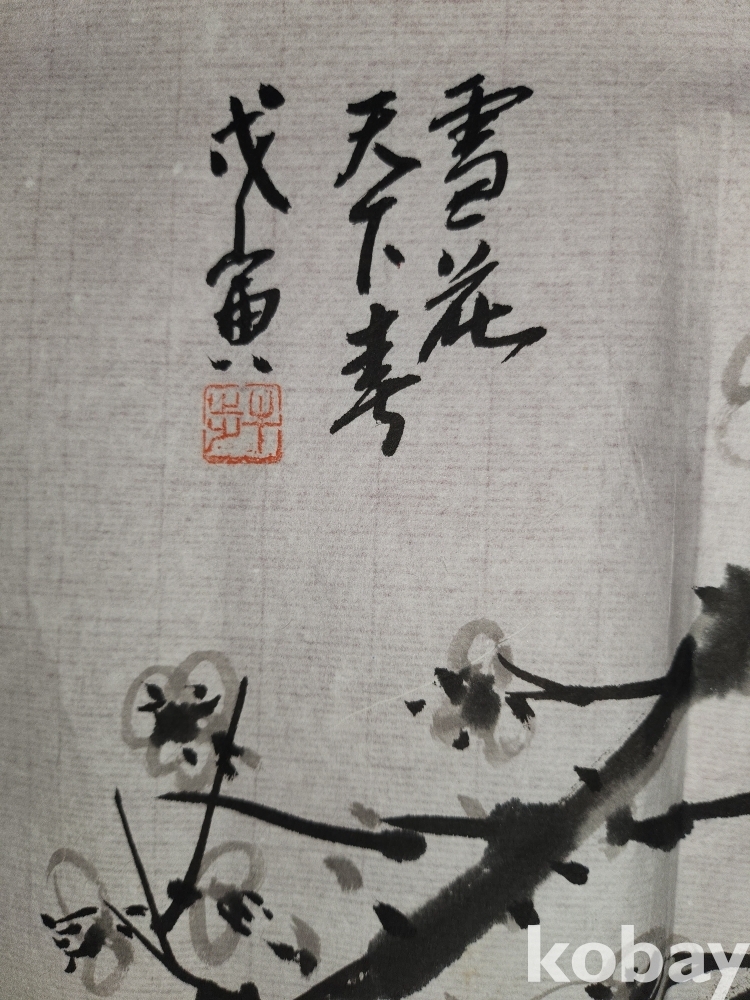 雪花
天下春
戊寅
kobay